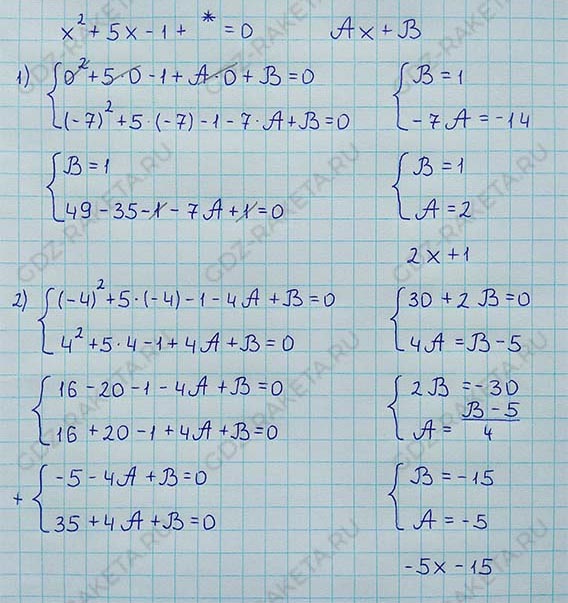 x² + 5x - 1 + * = 0    Ax + B
1) { 0² + 5·0 - 1 + A·0 + B = 0
(-7)² + 5·(-7) - 1 - 7·A + B = 0
{ B = 1
-7A = -14
{ B = 1
49 - 35 - 1 - 7A + 1 = 0
{ B = 1
A = 2
2x + 1
2) { (-4)² + 5·(-4) - 1 - 4A + B = 0
4² + 5·4 - 1 + 4A + B = 0
{ 30 + 2B = 0
4A = B - 5
{ 16 - 20 - 1 - 4A + B = 0
16 + 20 - 1 + 4A + B = 0
{ 2B = -30
A = (B - 5)/4
+ { -5 - 4A + B = 0
35 + 4A + B = 0
{ B = -15
A = -5
-5x - 15
GDZ-RAKETA.RU